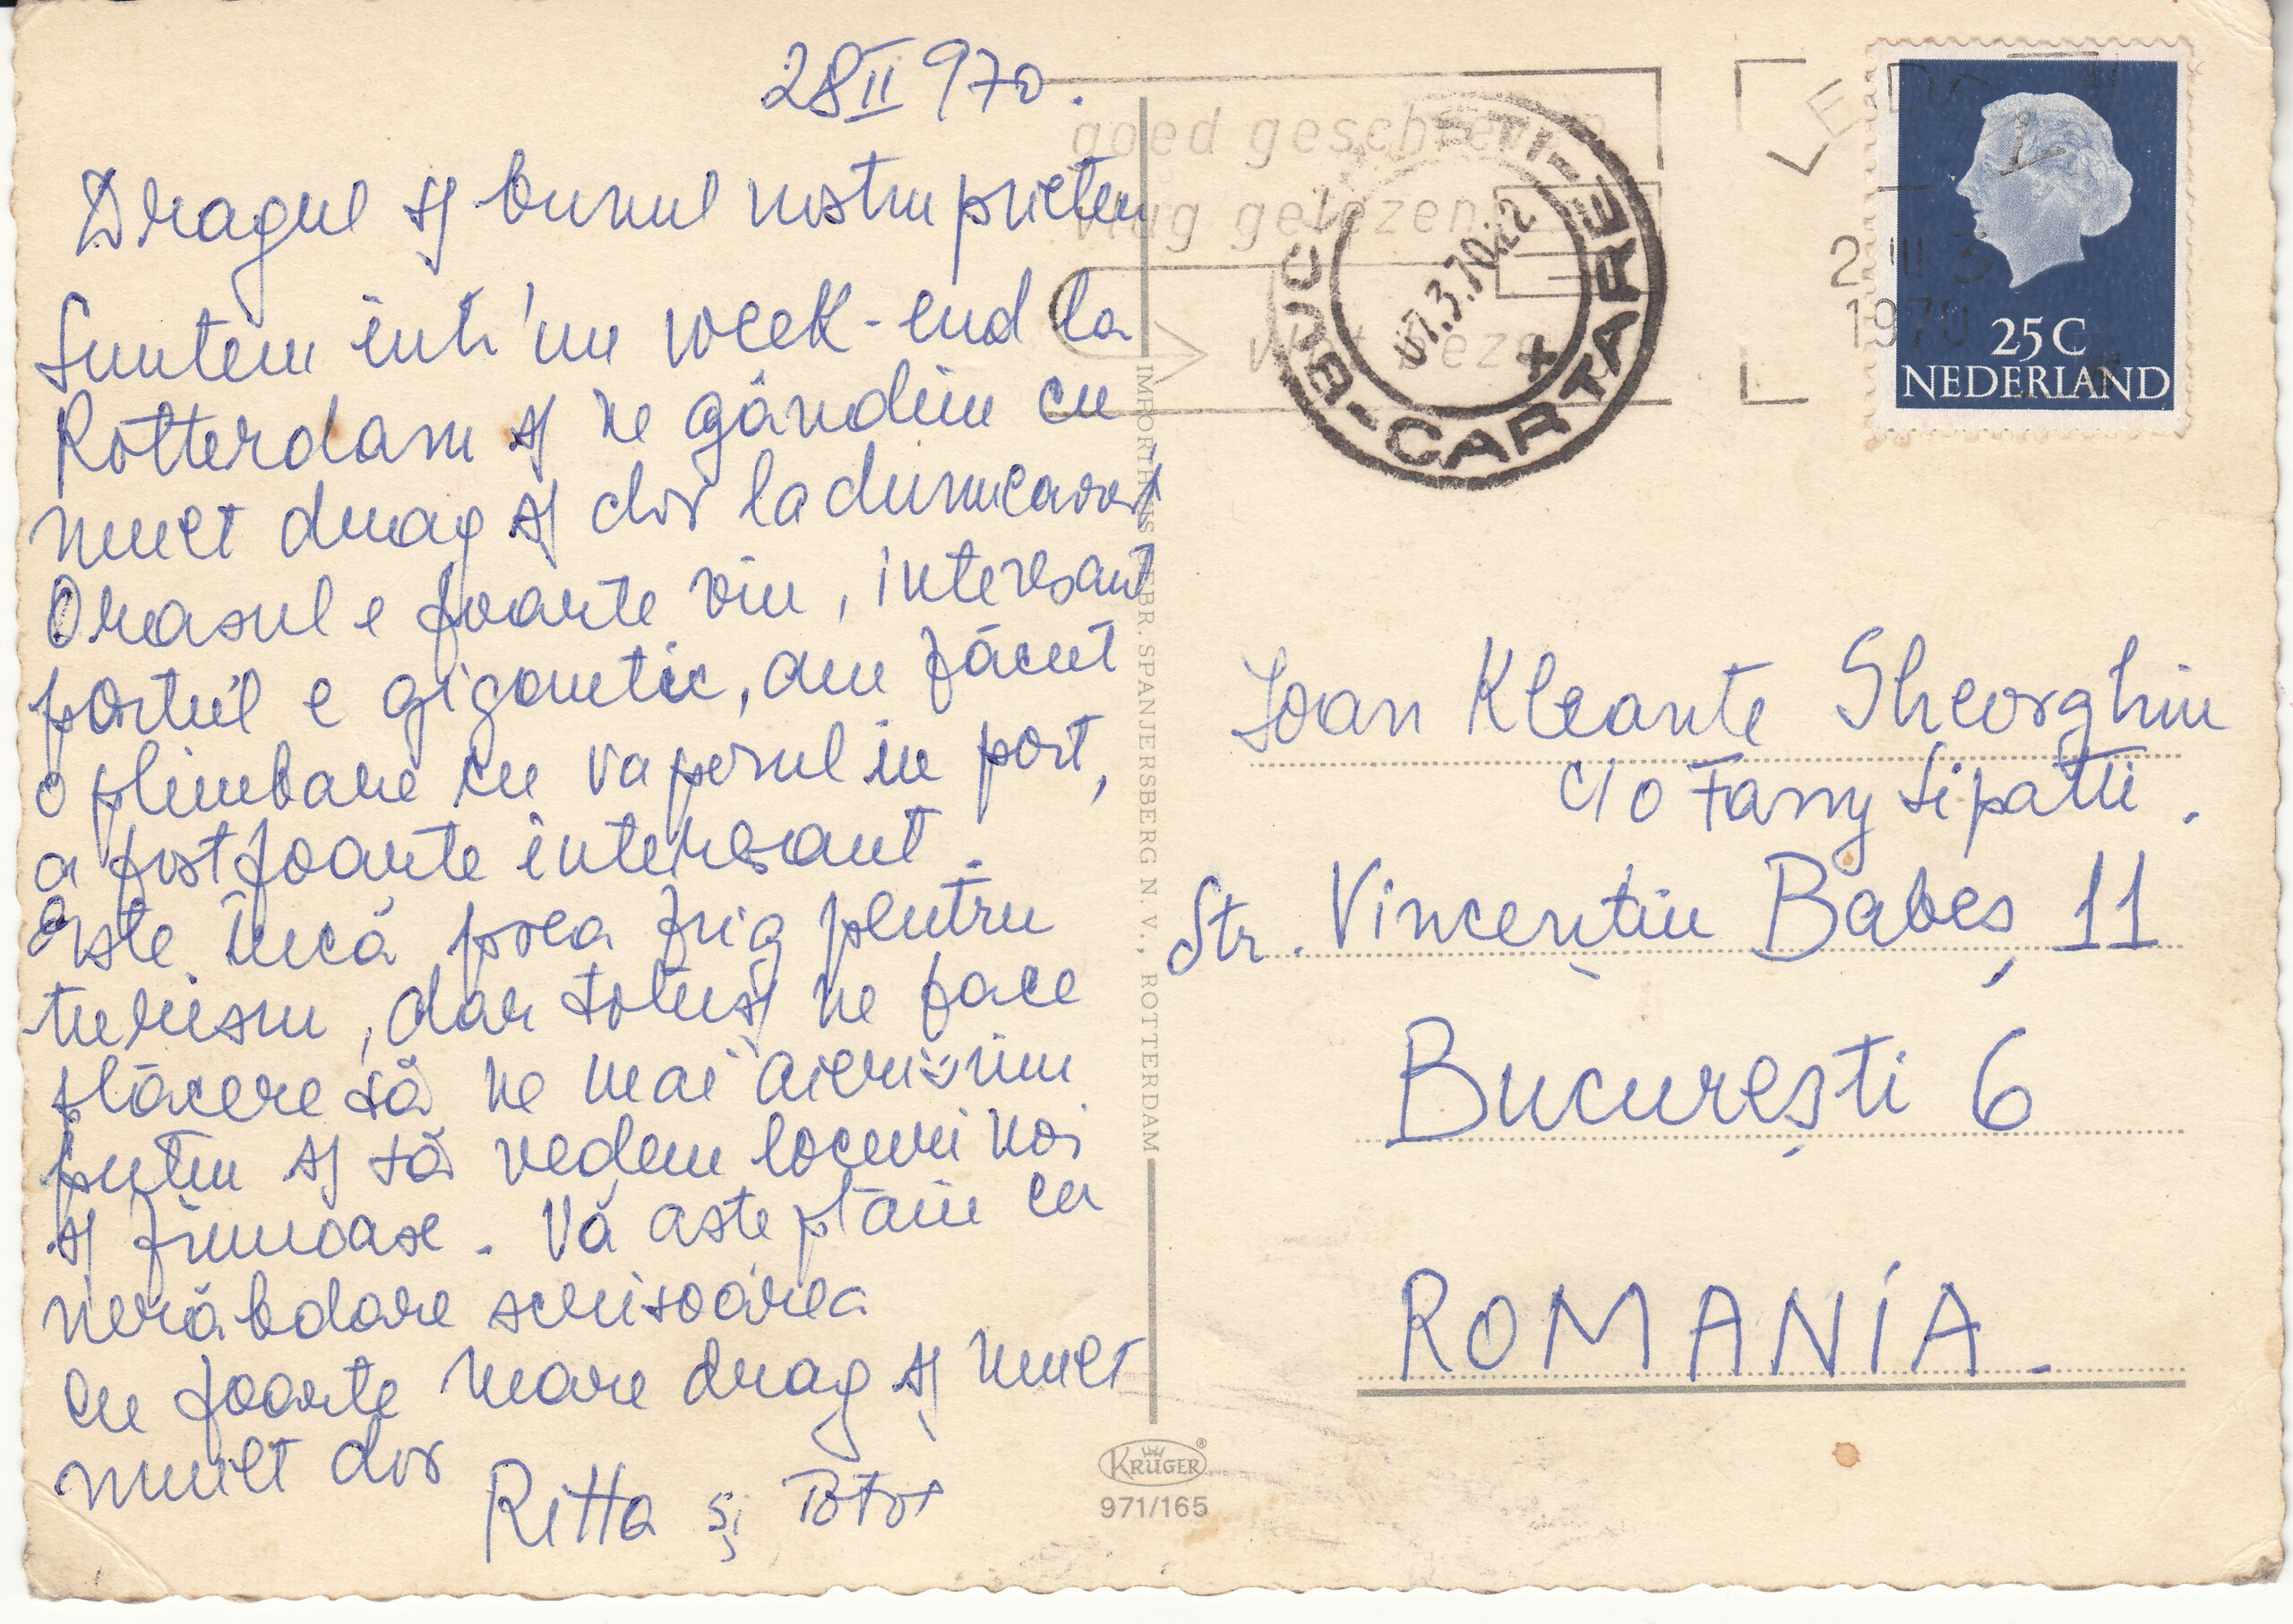 28 II 970.
Dragul și bunul nostru prieten
Suntem intr'un week-end la
Rotterdam și ne gândim cu
mult drag și dor la dumneavoastră
Orasul e foarte viu, interesant
portul e gigantic, am făcut
o plimbare cu vaporul in port,
a fost foarte interesant.
Este încă prea frig pentru
turism, dar totuși ne face
plăcere să ne mai aerisim
putin și să vedem locuri noi
și frumoase. Vă asteptăm cu
nerăbdare scrisoarea
cu foarte mare drag și mult
mult dor
Ritta și
goed geschreven
vlug gelezen
BUC STI-
CARTARE
07.3.70.22
2 III 3
1970
25 C
NEDERLAND
Ioan Kleante Gheorghiu
c/o Fanny Lipatti.
Str. Vincențiu Babeș 11
București 6
ROMANIA.
IMPORTHUIS GEBR. SPANJERSBERG N.V., ROTTERDAM
KRÜGER
971/165